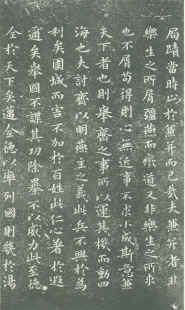 局蹟當時止於兼并而已哉夫兼并者非
樂生之所屑彊燕而廢道又非樂生之所求
也不屑苟得則心無近事不求小成斯意兼
天下者也則舉齊之事所以運其機而動四
海也夫討齊以明燕主之義此兵不興於為
利矣圍城而害不加於百姓此仁心著於遐
邇矣舉國不謀其功除暴不以威力此至德
全於天下矣邁全德以率列國則幾於湯